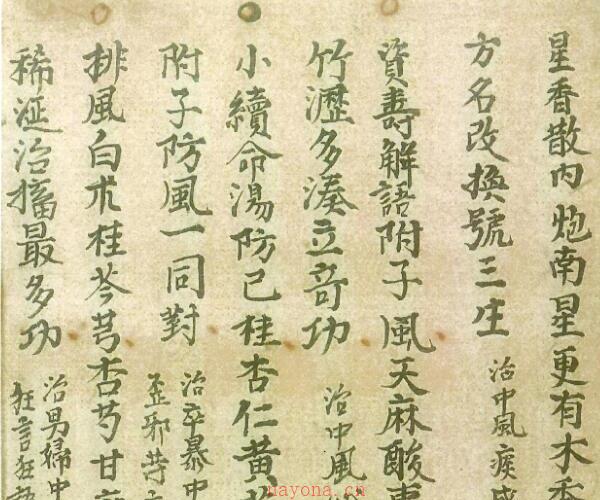 星香散內炮南星更有木香
方名改換號三生
治中風痰盛
資壽解語附子風天麻酸棗
竹瀝多湊立奇功
治中風
小續命湯防己桂杏仁黃
附子防風一同對
治卒暴中
歪邪等
排風白朮桂芩芎杏芍甘
稀涎治搐最多功
治男婦中
狂言狂
nayona.cn